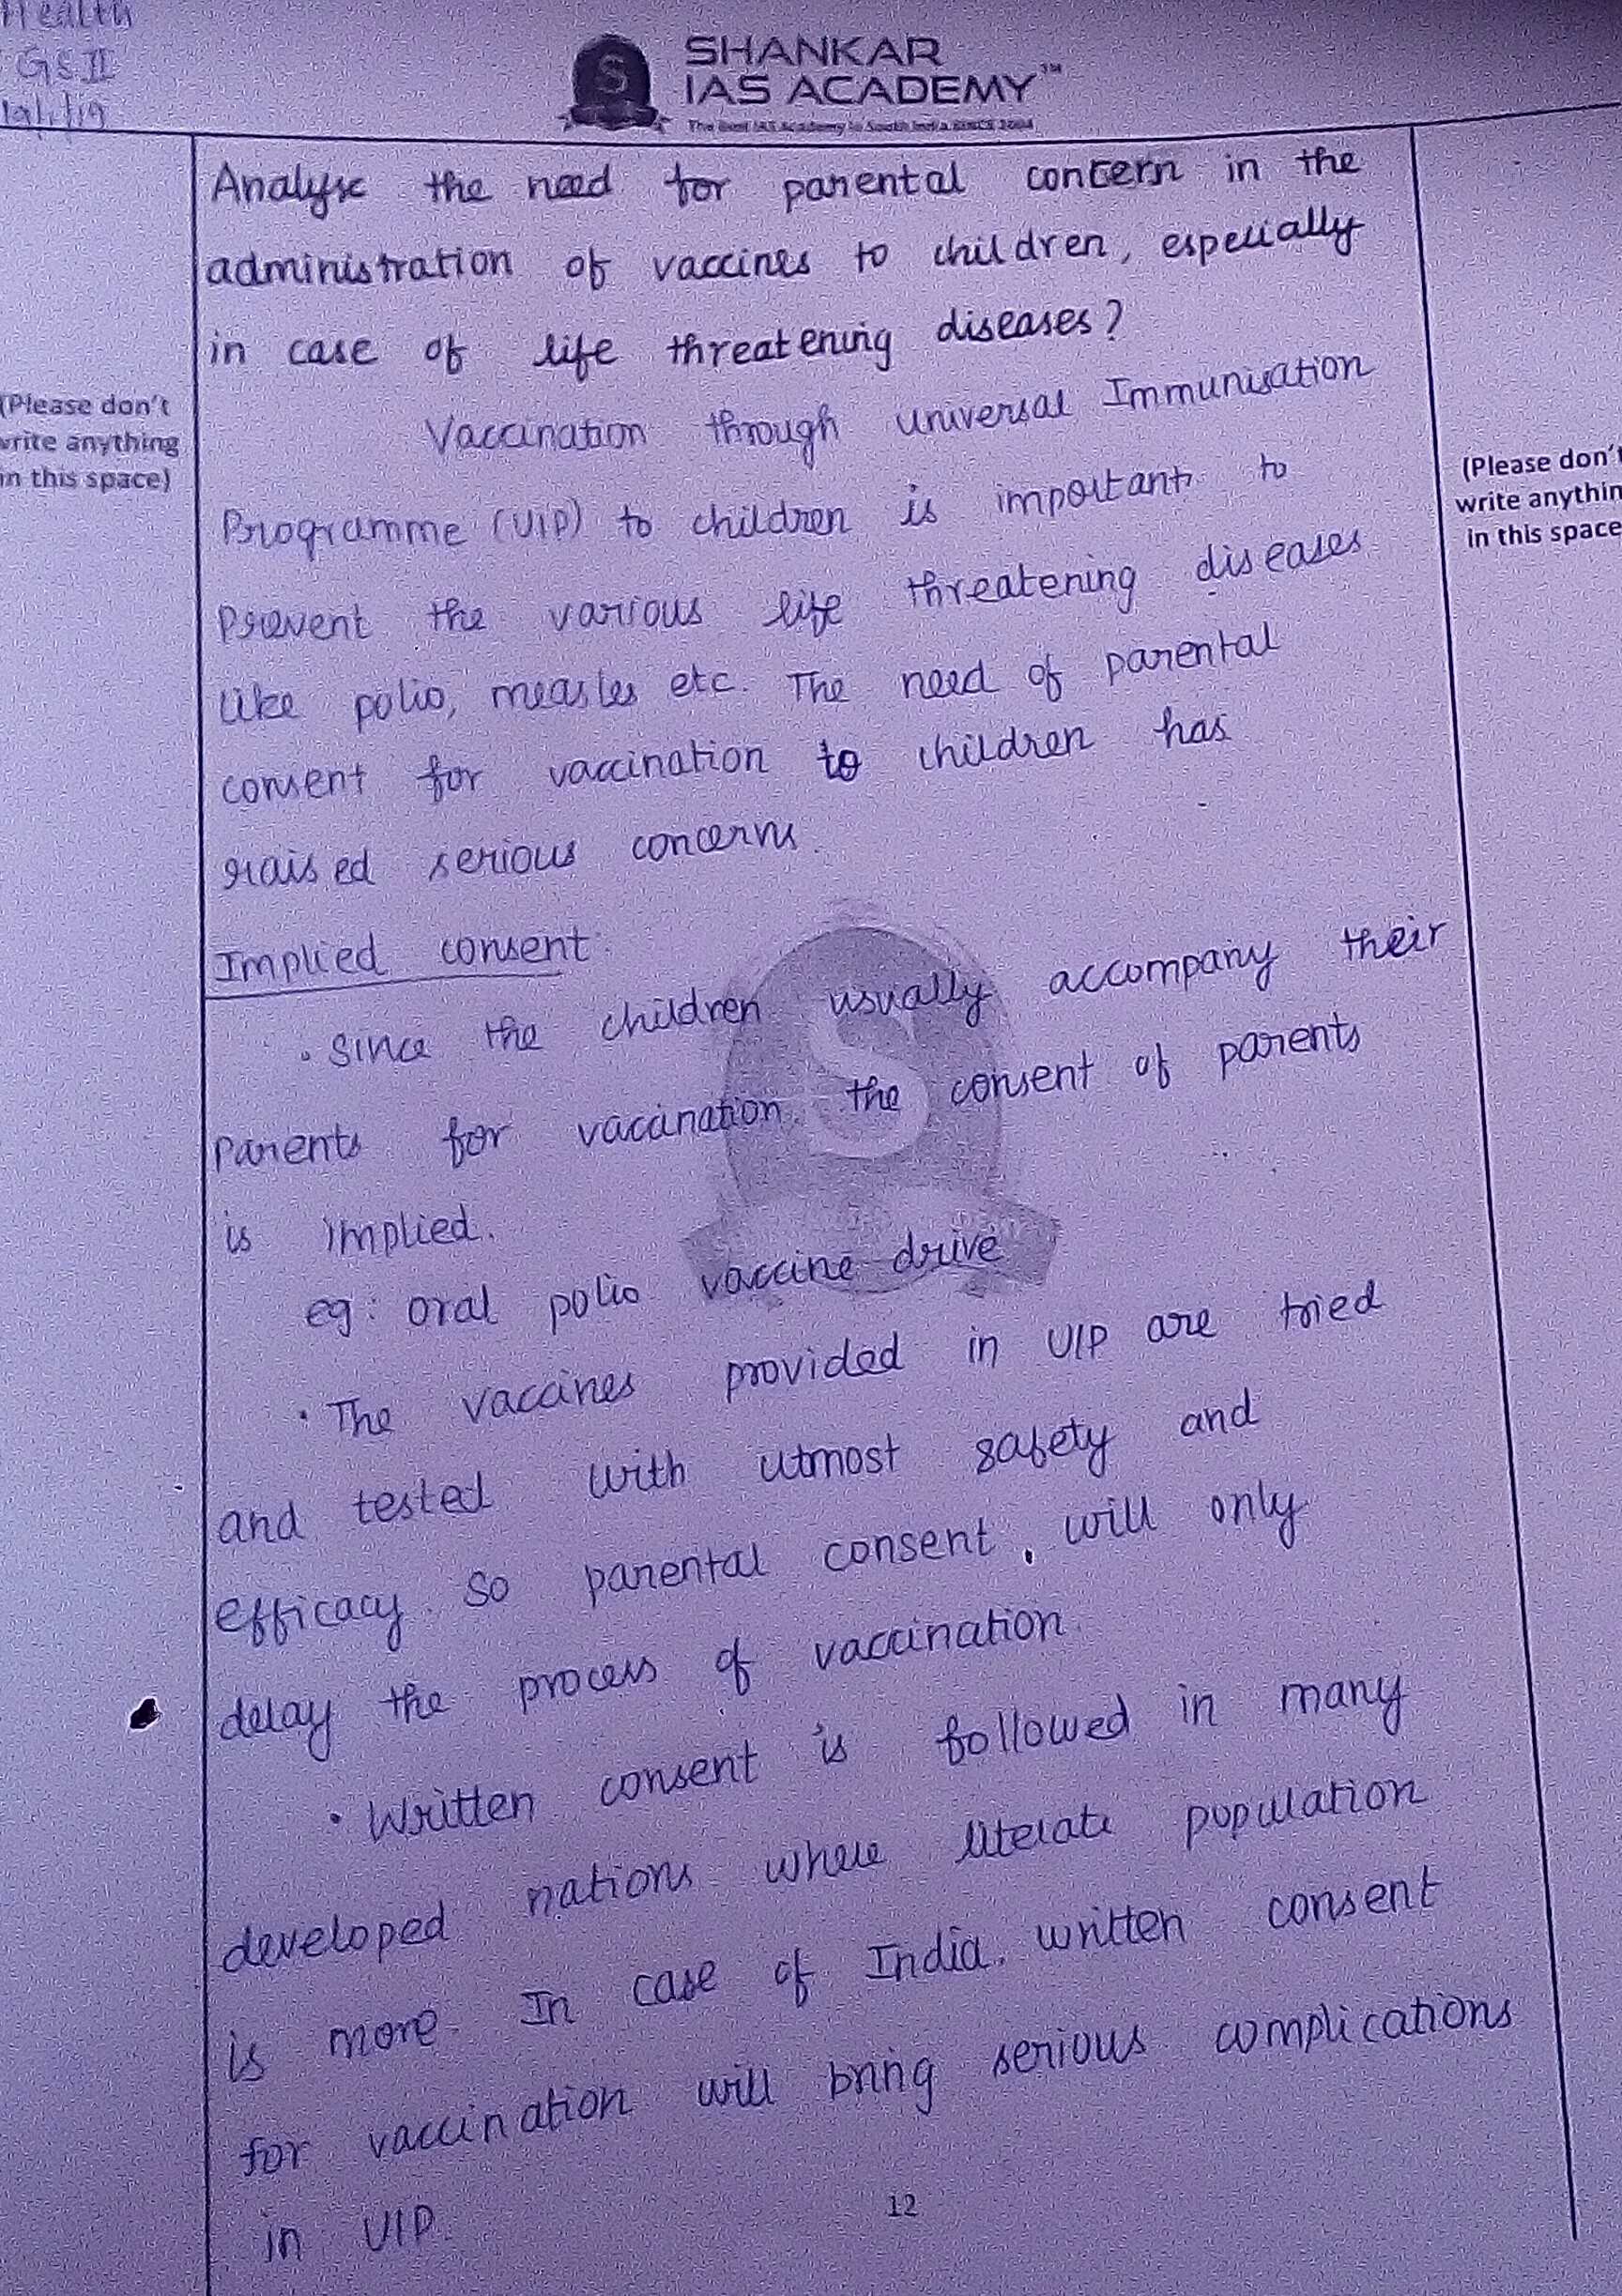 Health
GS II
SHANKAR
IAS ACADEMY™
The Best IAS Academy in South India SINCE 2004
Analyse the need for parental concern in the
administration of vaccines to children, especially
in case of life threatening diseases?
(Please don't
write anything
in this space)
Vaccination through Universal Immunisation
Programme (UIP) to children is important to
prevent the various life threatening diseases
like polio, measles etc. The need of parental
consent for vaccination to children has
raised serious concerns.
(Please don't
write anythin
in this space
Implied consent:
• Since the children usually accompany their
parents for vaccination, the consent of parents
is implied.
eg: oral polio vaccine drive
• The vaccines provided in UIP are tried
and tested with utmost safety and
efficacy. So parental consent, will only
delay the process of vaccination.
• Written consent is followed in many
developed nations where literate population
is more. In case of India, written consent
for vaccination will bring serious complications
in UIP.
12